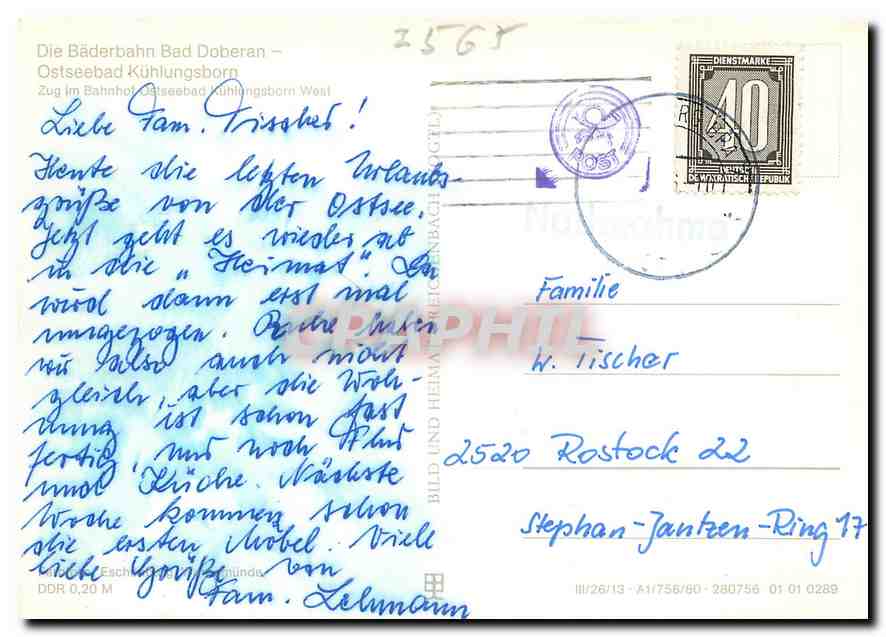 2565
Die Bäderbahn Bad Doberan –
Ostseebad Kühlungsborn
Zug im Bahnhof Ostseebad Kühlungsborn West
Liebe Fam. Tischer!
Heute die letzten Urlaubs-
grüße von der Ostsee.
Jetzt geht es wieder ab
in die „Heimat". Da
wird dann erst mal
umgezogen. Ruhe haben
wir also auch nicht
gleich, aber die Woh-
nung ist schon fast
fertig, nur noch Flur
und Küche. Nächste
Woche kommen schon
die ersten Möbel. Viele
liebe Grüße von
Fam. Lehmann
DDR 0,20 M
BILD UND HEIMAT REICHENBACH (VOGTL)
POST
DIENSTMARKE
40
DEUTSCHE
DEMOKRATISCHE REPUBLIK
Familie
W. Tischer
2520 Rostock 22
Stephan-Jantzen-Ring 17
III/26/13 - A1/756/80 - 280756 01 01 0289
CPAPHIL